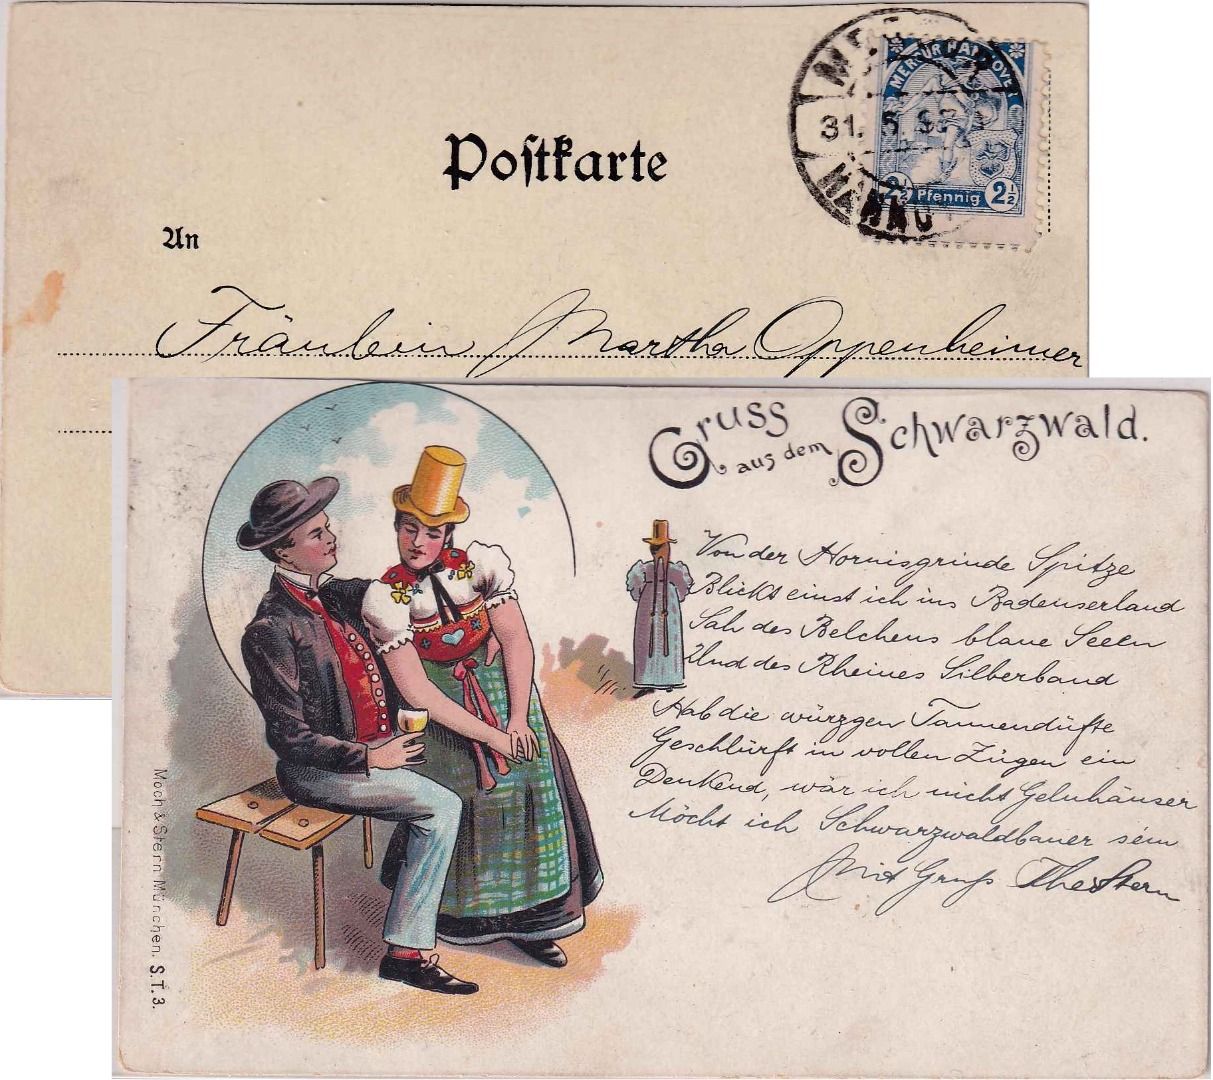 MERCUR HANNOVER
31. 5.
2½ Pfennig 2½
Postkarte
An
Fräulein Martha Oppenheimer
Gruss
aus dem Schwarzwald.
Von der Hornisgrinde Spitze
Blickt einst ich ins Badenserland
Sah des Belchens blaue Seeen
Und des Rheines Silberband
Hab die würzgen Tannendüfte
Geschlürft in vollen Zügen ein
Denkend, wär ich nicht Gelnhäuser
Möcht ich Schwarzwaldbauer sein
Mit Gruß Stern
Moch & Stern München. S.T.3.